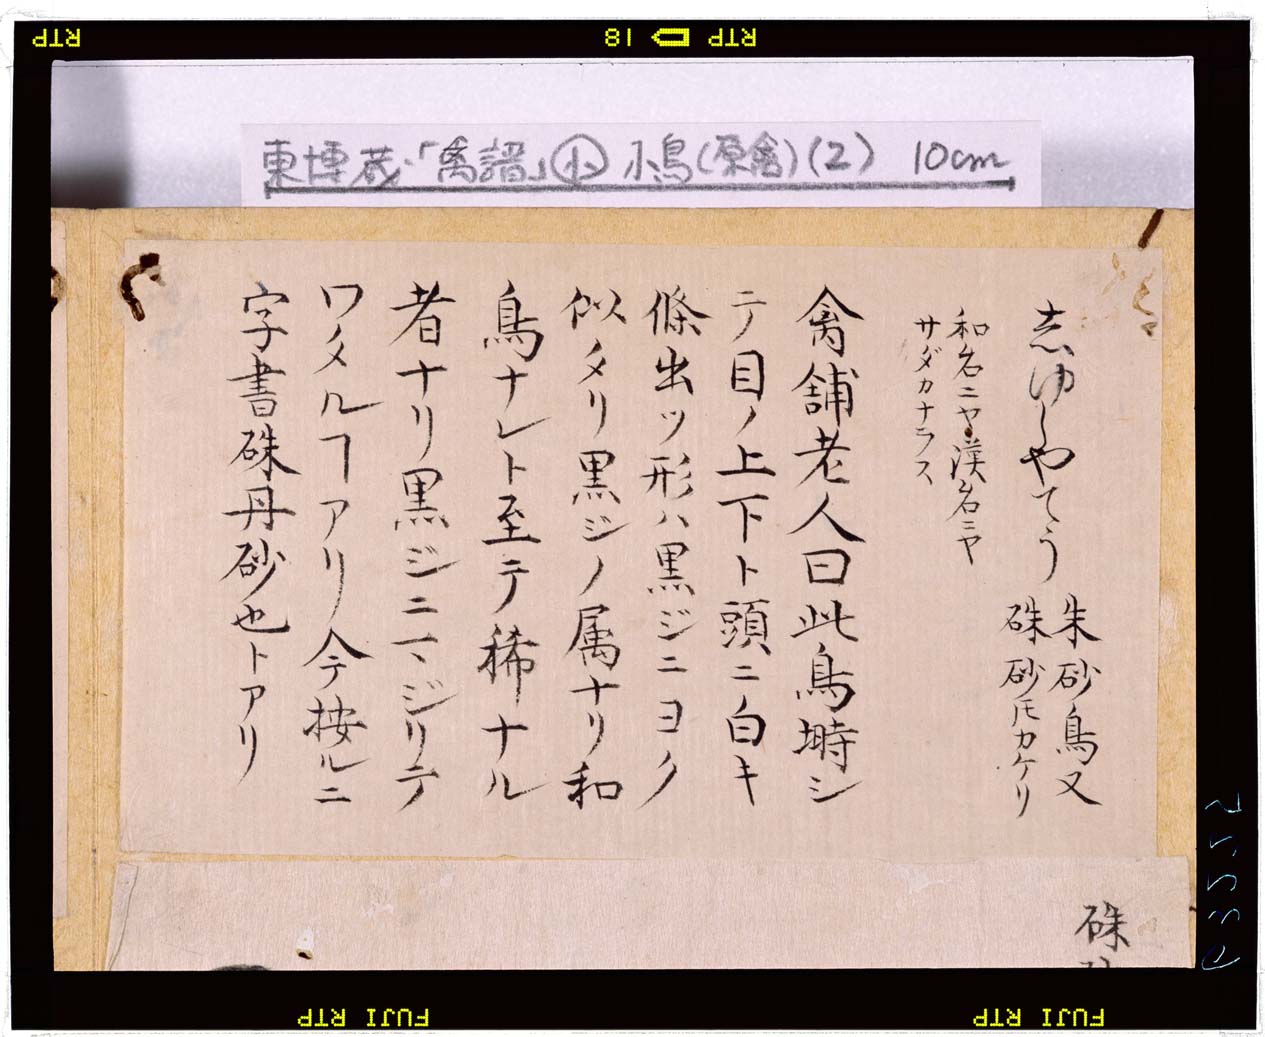 RTP
18
RTP
東博蔵・「禽譜」小 小鳥(原禽)(2) 10cm
志ゆしやてう
朱砂鳥又
硃砂𪜈カケリ
和名ニヤ漢名ニヤ
サダカナラス
禽舗老人曰此鳥塒シ
テ目ノ上下ト頭ニ白キ
條出ツ形ハ黒ジニヨク
似タリ黒ジノ属ナリ和
鳥ナレト至テ稀ナル
者ナリ黒ジニマヽジリテ
ワタルヿアリ今按ルニ
字書硃丹砂也トアリ
硃
FUJI RTP
FUJI RTP